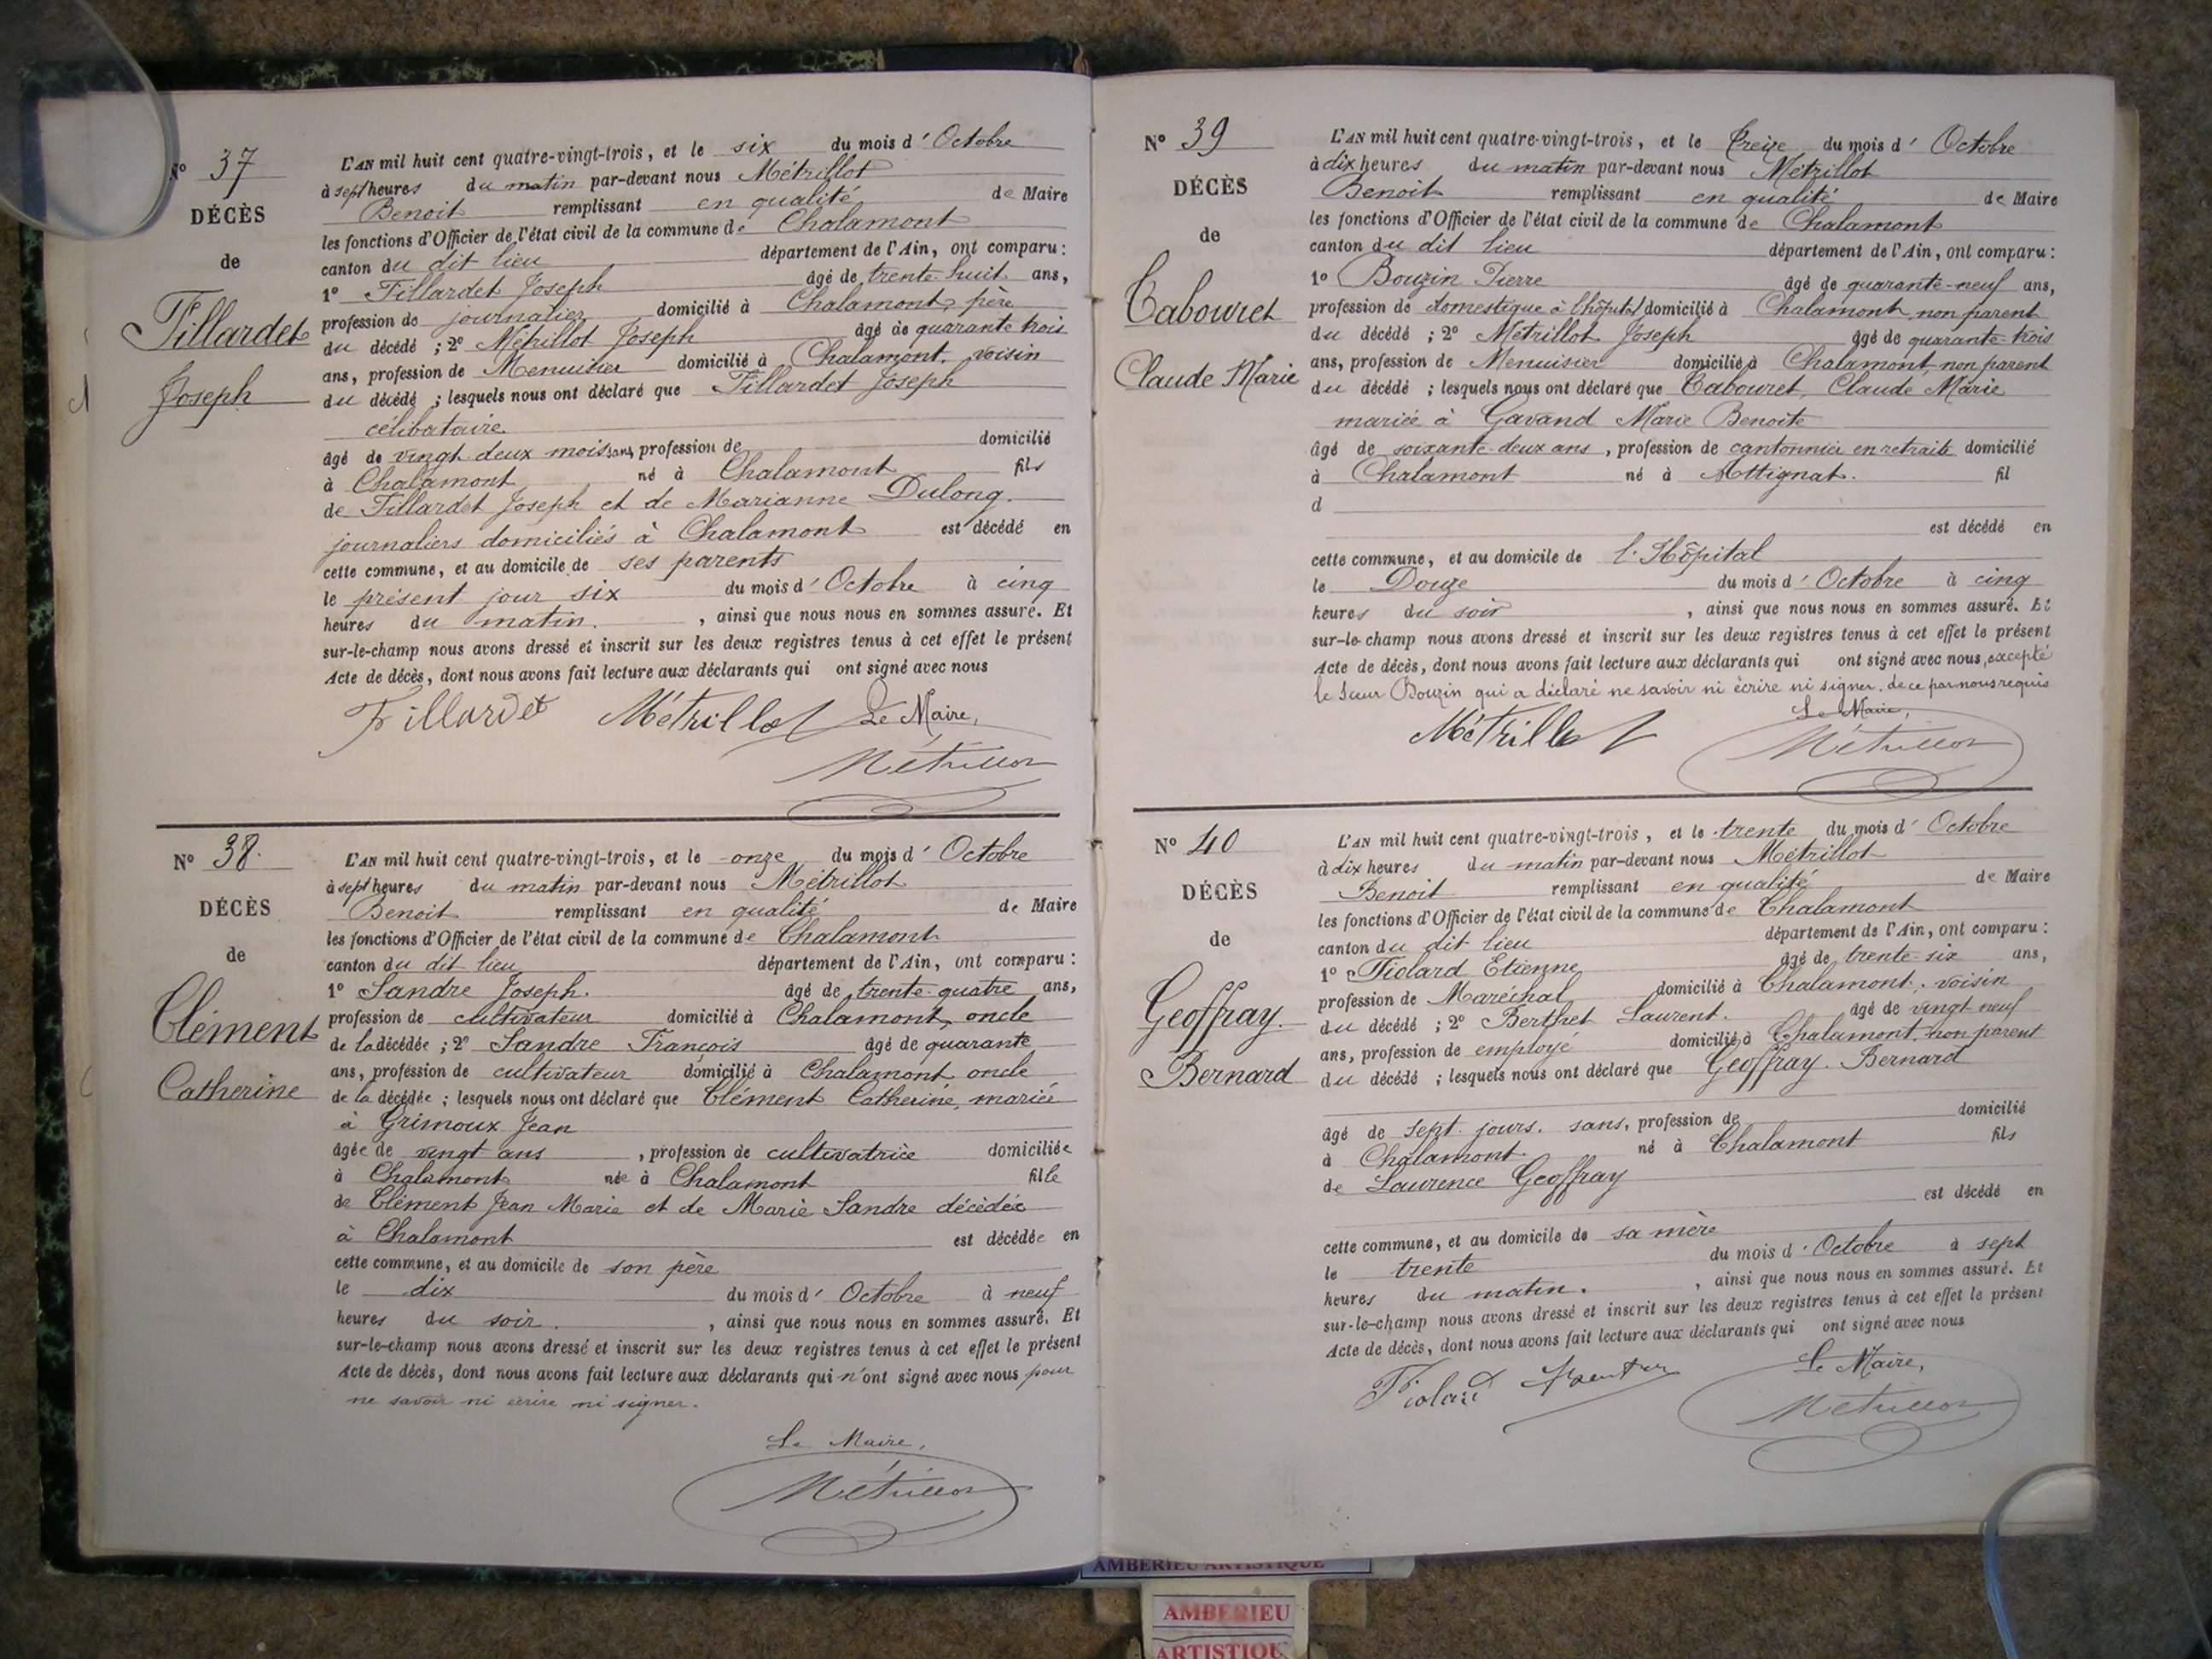 N° 37
DÉCÈS
de
Fillardet
Joseph
L'AN mil huit cent quatre-vingt-trois, et le six du mois d' Octobre
à sept heures du matin par-devant nous Métrillot
Benoit remplissant en qualité de Maire
les fonctions d'Officier de l'état civil de la commune de Chalamont
canton du dit lieu département de l'Ain, ont comparu :
1° Fillardet Joseph âgé de trente huit ans,
profession de journalier domicilié à Chalamont, père
du décédé ; 2° Métrillot Joseph âgé de quarante trois
ans, profession de Menuisier domicilié à Chalamont, voisin
du décédé ; lesquels nous ont déclaré que Fillardet Joseph
célibataire
âgé de vingt deux mois sans profession de domicilié
à Chalamont né à Chalamont fils
de Fillardet Joseph et de Marianne Dulong.
journaliers domiciliés à Chalamont est décédé en
cette commune, et au domicile de ses parents
le présent jour six du mois d' Octobre à cinq
heures du matin. , ainsi que nous nous en sommes assuré. Et
sur-le-champ nous avons dressé et inscrit sur les deux registres tenus à cet effet le présent
Acte de décès, dont nous avons fait lecture aux déclarants qui ont signé avec nous
Fillardet Métrillot Le Maire,
Métrillot
N° 38.
DÉCÈS
de
Clément
Catherine
L'AN mil huit cent quatre-vingt-trois, et le onze du mois d' Octobre
à sept heures du matin par-devant nous Métrillot
Benoit remplissant en qualité de Maire
les fonctions d'Officier de l'état civil de la commune de Chalamont
canton du dit lieu département de l'Ain, ont comparu :
1° Sandre Joseph. âgé de trente-quatre ans,
profession de cultivateur domicilié à Chalamont, oncle
de la décédée ; 2° Sandre François âgé de quarante
ans, profession de cultivateur domicilié à Chalamont oncle
de la décédée ; lesquels nous ont déclaré que Clément Catherine, mariée
à Grimoux Jean
âgée de vingt ans , profession de cultivatrice domiciliée
à Chalamont née à Chalamont fille
de Clément Jean Marie et de Marie Sandre décédée
à Chalamont est décédée en
cette commune, et au domicile de son père
le dix du mois d' Octobre à neuf
heures du soir. , ainsi que nous nous en sommes assuré. Et
sur-le-champ nous avons dressé et inscrit sur les deux registres tenus à cet effet le présent
Acte de décès, dont nous avons fait lecture aux déclarants qui n'ont signé avec nous pour
ne savoir ni écrire ni signer.
Le Maire,
Métrillot
N° 39
DÉCÈS
de
Cabouret
Claude Marie
L'AN mil huit cent quatre-vingt-trois, et le treize du mois d' Octobre
à dix heures du matin par-devant nous Métrillot
Benoit remplissant en qualité de Maire
les fonctions d'Officier de l'état civil de la commune de Chalamont
canton du dit lieu département de l'Ain, ont comparu :
1° Bouzin Pierre âgé de quarante-neuf ans,
profession de domestique à l'hôpital domicilié à Chalamont non parent
du décédé ; 2° Métrillot Joseph âgé de quarante-trois
ans, profession de Menuisier domicilié à Chalamont, non parent
du décédé ; lesquels nous ont déclaré que Cabouret, Claude Marie
mariée à Gavand Marie Benoite
âgé de soixante-deux ans , profession de cantonnier en retraite domicilié
à Chalamont né à Attignat. fil
d
est décédé en
cette commune, et au domicile de l'Hôpital
le Douze du mois d' Octobre à cinq
heures du soir , ainsi que nous nous en sommes assuré. Et
sur-le-champ nous avons dressé et inscrit sur les deux registres tenus à cet effet le présent
Acte de décès, dont nous avons fait lecture aux déclarants qui ont signé avec nous, excepté
le sieur Bouzin qui a déclaré ne savoir ni écrire ni signer. de ce par nous requis
Le Maire,
Métrillot Métrillot
N° 40
DÉCÈS
de
Geoffray.
Bernard
L'AN mil huit cent quatre-vingt-trois, et le trente du mois d' Octobre
à dix heures du matin par-devant nous Métrillot
Benoit remplissant en qualité de Maire
les fonctions d'Officier de l'état civil de la commune de Chalamont
canton du dit lieu département de l'Ain, ont comparu :
1° Fiolard Etienne âgé de trente-six ans,
profession de Maréchal domicilié à Chalamont, voisin
du décédé ; 2° Berthet Laurent. âgé de vingt neuf
ans, profession de employé domicilié à Chalamont, non parent
du décédé ; lesquels nous ont déclaré que Geoffray. Bernard
âgé de sept jours. sans, profession de domicilié
à Chalamont. né à Chalamont fils
de Laurence Geoffray
est décédé en
cette commune, et au domicile de sa mère
le trente du mois d' Octobre à sept
heures du matin. , ainsi que nous nous en sommes assuré. Et
sur-le-champ nous avons dressé et inscrit sur les deux registres tenus à cet effet le présent
Acte de décès, dont nous avons fait lecture aux déclarants qui ont signé avec nous
Le Maire,
Fiolard
Métrillot
AMBERIEU ARTISTIQUE
AMBERIEU
ARTISTIQU